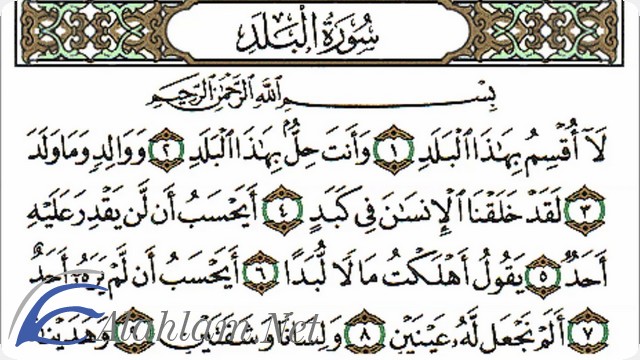 سُورَةُ الْبَلَدِ
بِسْمِ اللَّهِ الرَّحْمَٰنِ الرَّحِيمِ
لَا أُقْسِمُ بِهَٰذَا الْبَلَدِ ١ وَأَنتَ حِلٌّ بِهَٰذَا الْبَلَدِ ٢ وَوَالِدٍ وَمَا وَلَدَ
٣ لَقَدْ خَلَقْنَا الْإِنسَٰنَ فِي كَبَدٍ ٤ أَيَحْسَبُ أَن لَّن يَقْدِرَ عَلَيْهِ
أَحَدٌ ٥ يَقُولُ أَهْلَكْتُ مَالًا لُّبَدًا ٦ أَيَحْسَبُ أَن لَّمْ يَرَهُ أَحَدٌ
٧ أَلَمْ نَجْعَل لَّهُ عَيْنَيْنِ ٨ وَلِسَانًا وَشَفَتَيْنِ ٩ وَهَدَيْنَٰهُ
Atahlam.Net